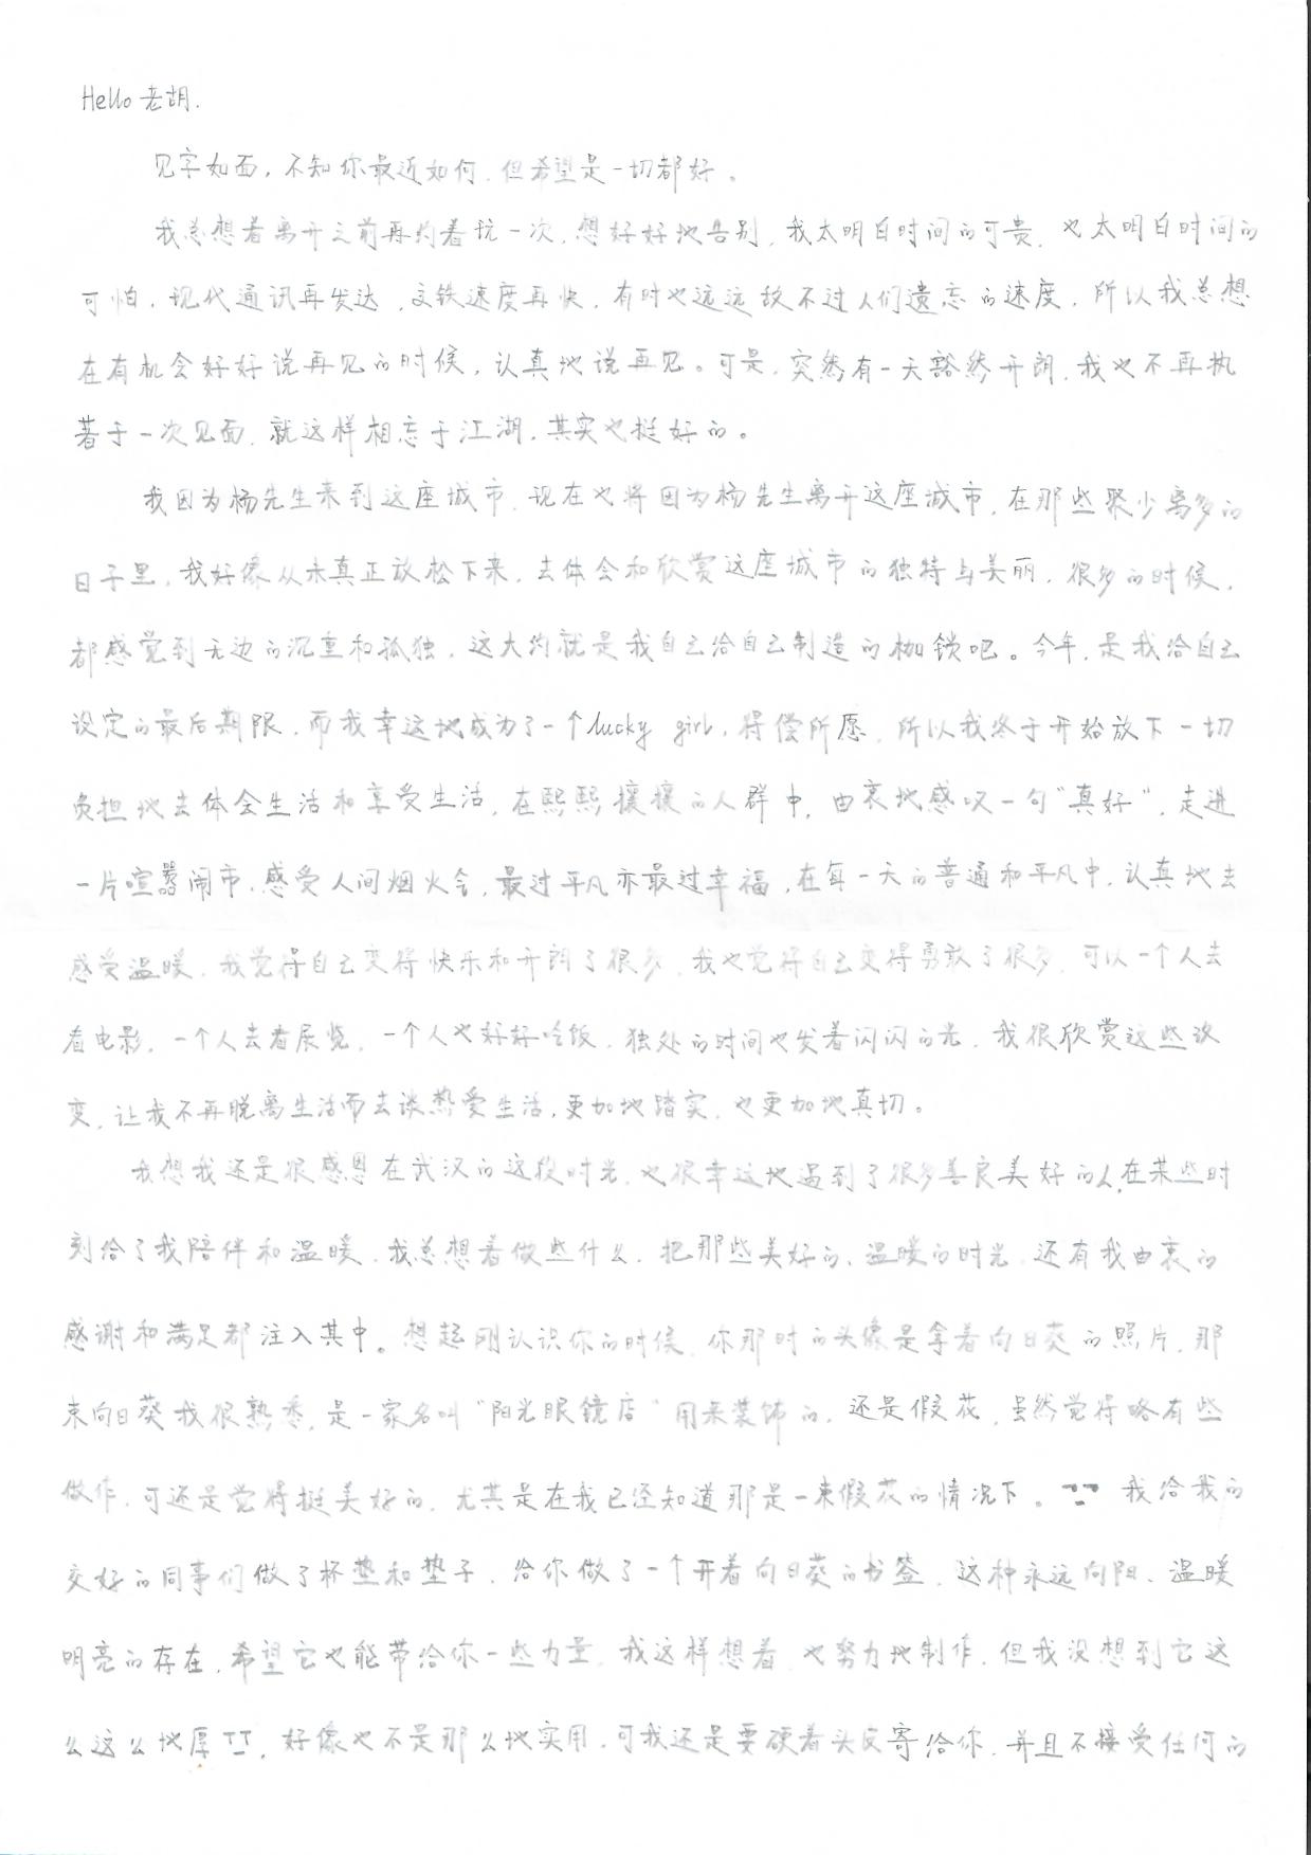 Hello 老胡.
见字如面，不知你最近如何，但希望是一切都好。
我总想着离开之前再约着玩一次，想好好地告别，我太明白时间的可贵，也太明白时间的
可怕，现代通讯再发达，交铁速度再快，有时也远远敌不过人们遗忘的速度，所以我总想
在有机会好好说再见的时候，认真地说再见。可是，突然有一天豁然开朗，我也不再执
著于一次见面，就这样相忘于江湖，其实也挺好的。
我因为杨先生来到这座城市，现在也将因为杨先生离开这座城市，在那些聚少离多的
日子里，我好像从未真正放松下来，去体会和欣赏这座城市的独特与美丽，很多的时候，
都感觉到无边的沉重和孤独，这大约就是我自己给自己制造的枷锁吧。今年，是我给自己
设定的最后期限，而我幸运地成为了一个lucky girl，得偿所愿，所以我终于开始放下一切
负担地去体会生活和享受生活，在熙熙攘攘的人群中，由衷地感叹一句“真好”，走进
一片喧嚣闹市，感受人间烟火会，最过平凡亦最过幸福，在每一天的普通和平凡中，认真地去
感受温暖，我觉得自己变得快乐和开朗了很多，我也觉得自己变得勇敢了很多，可以一个人去
看电影，一个人去看展览，一个人也好好吃饭，独处的时间也发着闪闪的光，我很欣赏这些改
变，让我不再脱离生活而去谈热爱生活，更加地踏实，也更加地真切。
我想我还是很感恩在武汉的这段时光，也很幸运地遇到了很多善良美好的人，在某些时
刻给了我陪伴和温暖，我总想着做些什么，把那些美好的、温暖的时光，还有我由衷的
感谢和满足都注入其中。想起刚认识你的时候，你那时的头像是拿着向日葵的照片，那
束向日葵我很熟悉，是一家名叫“阳光眼镜店”用来装饰的，还是假花，虽然觉得略有些
做作，可还是觉得挺美好的，尤其是在我已经知道那是一束假花的情况下。我给我的
交好的同事们做了杯垫和垫子，给你做了一个开着向日葵的书签，这种永远向阳、温暖
明亮的存在，希望它也能带给你一些力量，我这样想着，也努力地制作，但我没想到它这
么这么地厚TT，好像也不是那么地实用，可我还是要硬着头皮寄给你，并且不接受任何的